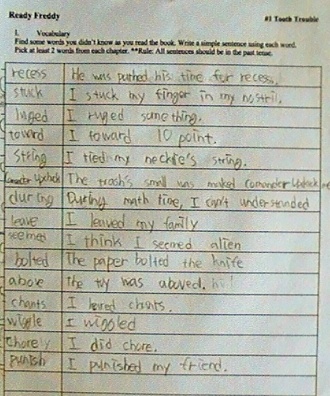 Ready Freddy #1 Tooth Trouble
I. Vocabulary
Find some words you didn't know as you read the book. Write a simple sentence using each word.
Pick at least 2 words from each chapter. **Rule: All sentences should be in the past tense.
recess He was pushed his time for recess.
stuck I stuck my finger in my nostril.
I something.
toward I toward 10 point.
string I tied my neckie's string.
The trash's smell was maked Comander Upchuck
during During math time, I can't understanded
leave I leaved my family
seemed I think I seemed alien
bolted The paper bolted the knife
above The toy was aboved.
chants I loved chants.
wiggle I wiggled
chorely I did chore.
punish I punished my friend.